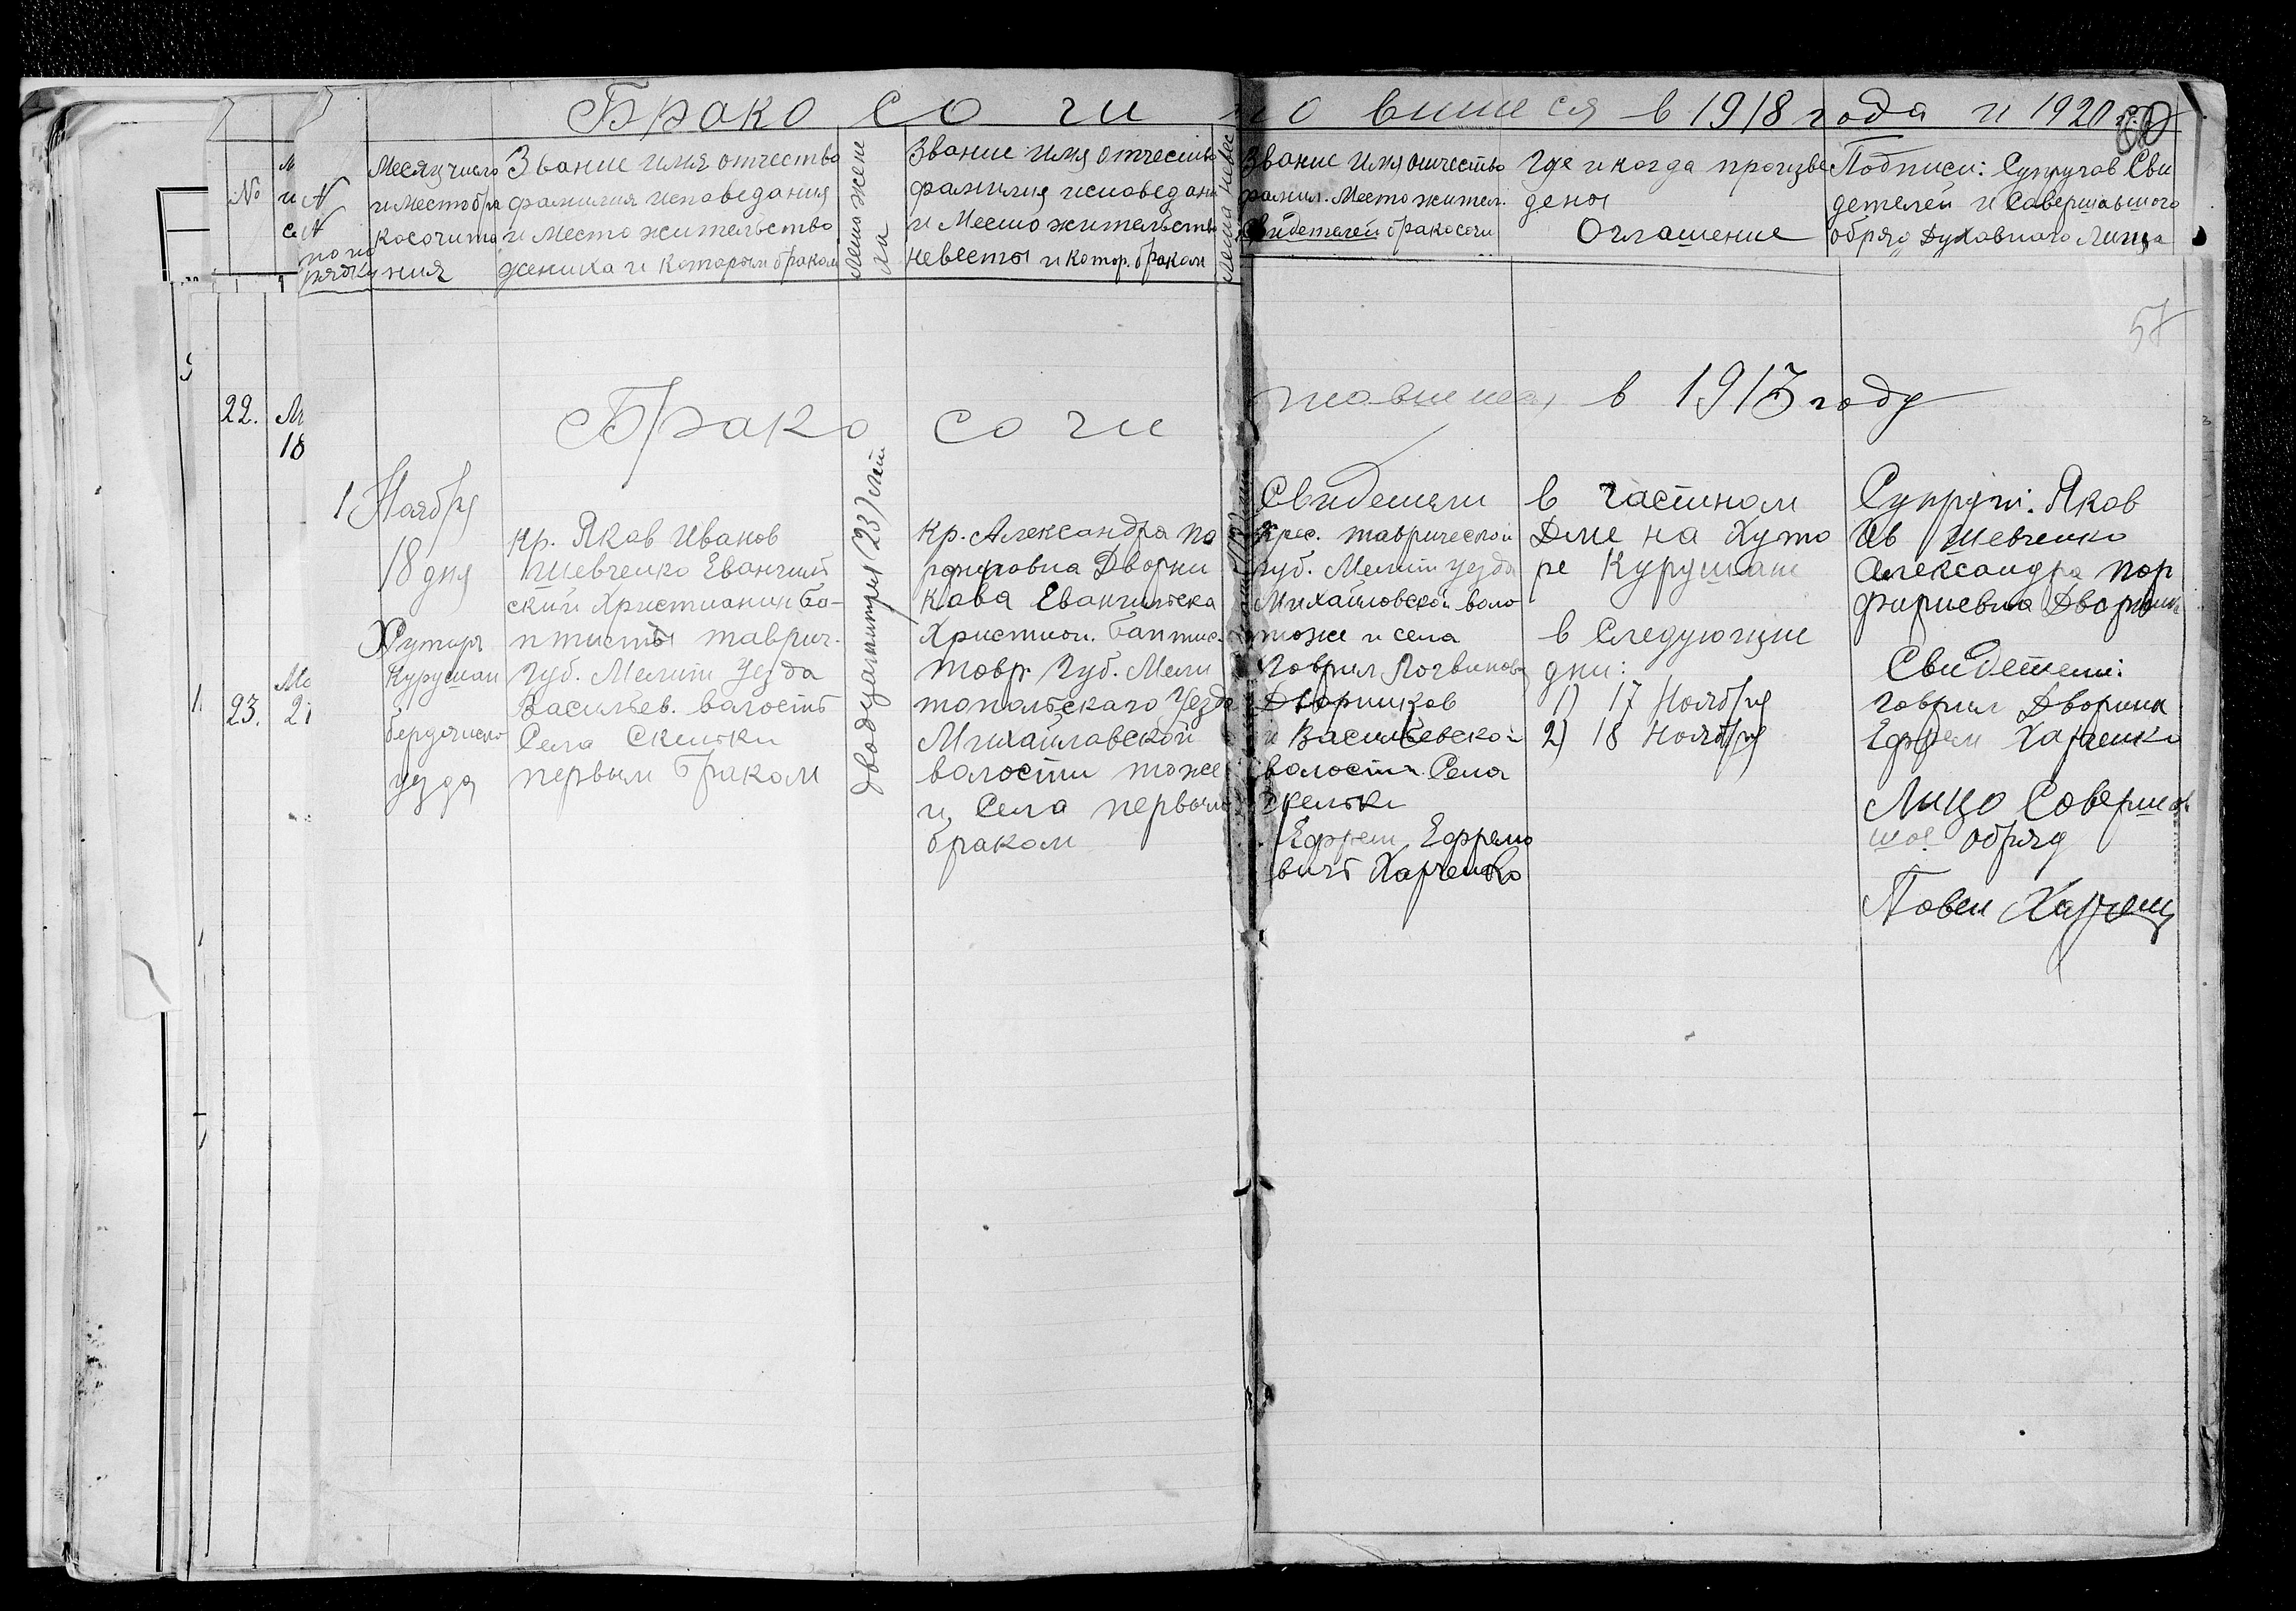 Бракосочитовшиеся в 1918 года и 1920
60
№
№ по порядку
Месяц число
и место бра
косочита
ния
Звание имя отчество
фамилия исповедания
и место жительство
жениха и которым браком
Лета жениха
Звание имя отчество
фамилия исповедания
и место жительств
невесты и котор. браком
Лета невес
Звание имя отчество
фамил. место жител.
свидетелей бракосочи
Где и когда произве
дены
Оглашение
Подписи: Супругов Сви
детелей и Совершавшого
обряд Духовнаго Лица
57
Бракосочи
тавшиеся в 1913 году
22.
18
1.
23.
1 Ноября
18 дня
Хутор
Курушан
бердянско
уезда
кр. Яков Иванов
Шевченко Евангил
ский Христианин Ба-
птисты таврич.
Губ. Мелит уезда
Васильев. валость
Села Скельки
первым браком
двадцатитри (23) лет
Кр. Александра По
рфировна Дворни
кова Евангильска
Христион. баптис.
товр. Губ. Мели
топольскаго Уезда
Михайлавской
валости тоже
и Села первым
браком
Свидетели
Крес. таврической
губ. Мелит уезда
Михайловской воло
тоже и села
Гаврил Логвинов
Дворников
и Васильевской
валости Села
Скельки
Ефрем Ефремо
вичь Харченко
в частном
Доме на Хуто
ре Курушане
в следующие
дни:
1) 17 Ноября
2) 18 Ноября
Супруги: Яков
Ив Шевченко
Александра Пор
фириевна Дворник
Свидетели:
Гаврил Дворник
Ефрем Харченко
Лицо Соверша
шое обряд
Павел Харченк